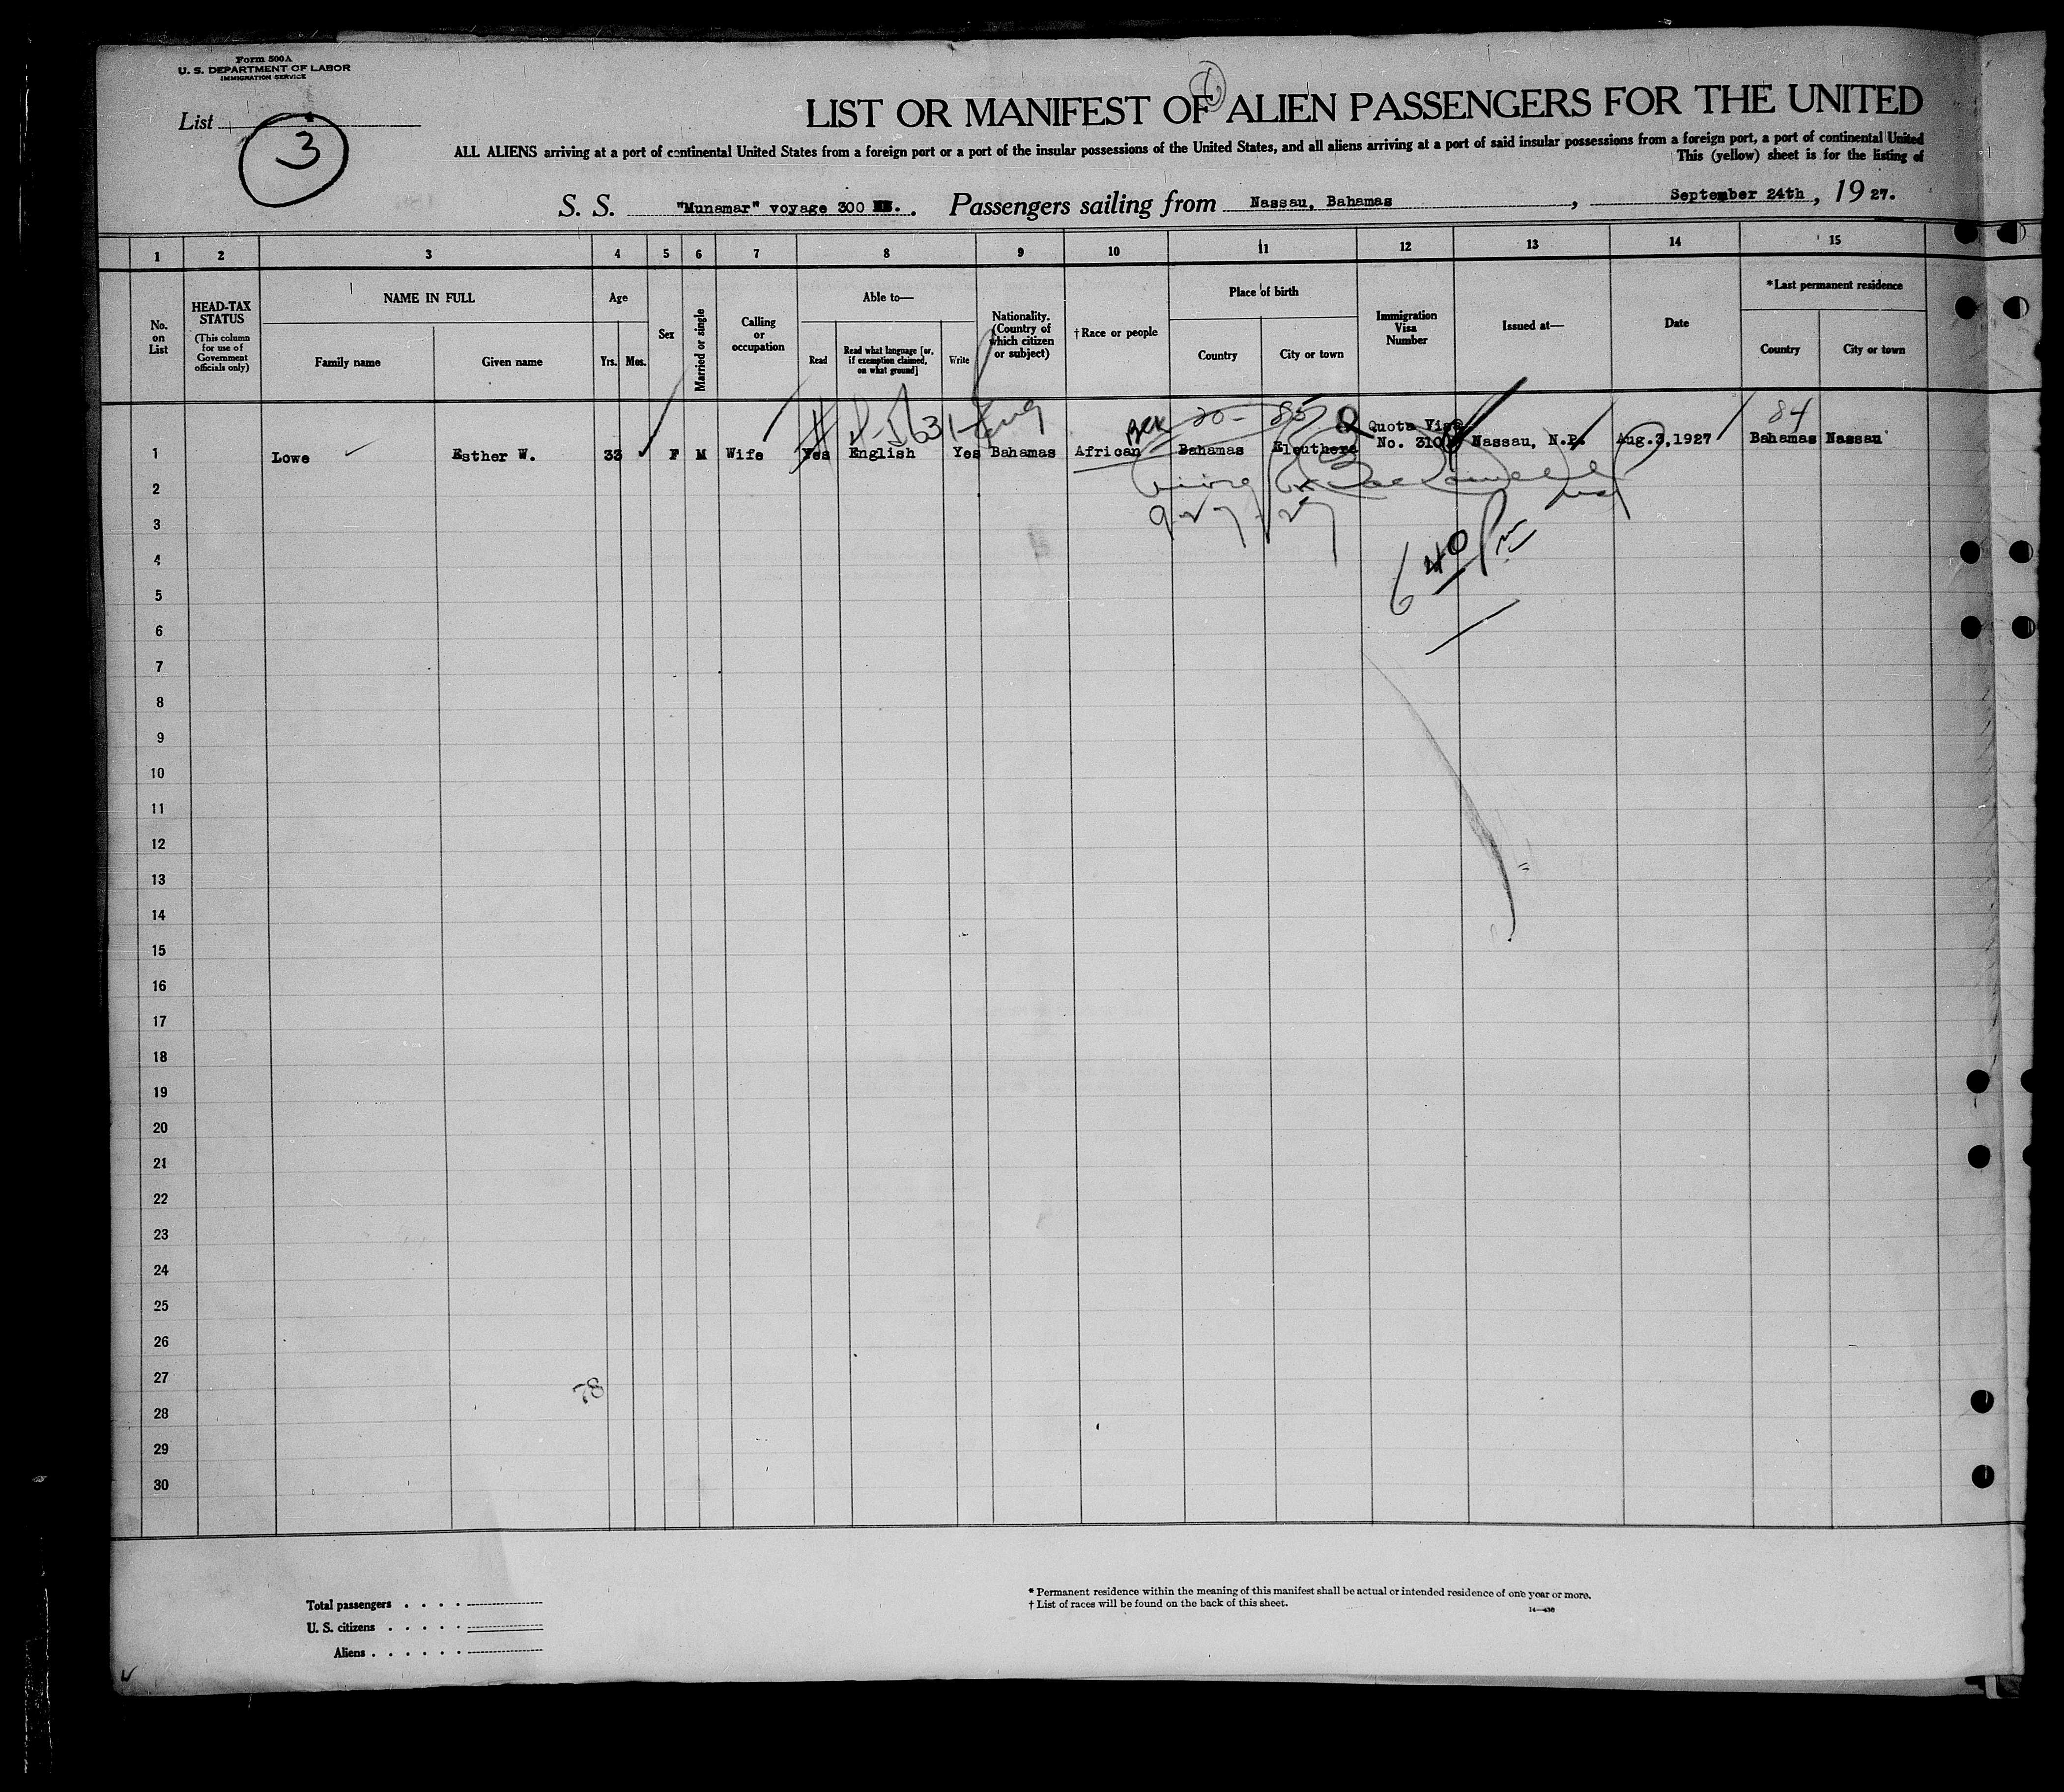 Form 500A
U. S. DEPARTMENT OF LABOR
IMMIGRATION SERVICE
List
3
LIST OR MANIFEST OF ALIEN PASSENGERS FOR THE UNITED
ALL ALIENS arriving at a port of continental United States from a foreign port or a port of the insular possessions of the United States, and all aliens arriving at a port of said insular possessions from a foreign port, a port of continental United
This (yellow) sheet is for the listing of
S. S. "Munamar" voyage 300 . Passengers sailing from Nassau, Bahamas, September 24th, 1927.
1 2 3 4 5 6 7 8 9 10 11 12 13 14 15
No. on List
HEAD-TAX STATUS
(This column for use of Government officials only)
NAME IN FULL
Family name
Given name
Age
Yrs. Mos.
Sex
Married or single
Calling or occupation
Able to—
Read
Read what language [or, if exemption claimed, on what ground]
Write
Nationality. (Country of which citizen or subject)
†Race or people
Place of birth
Country
City or town
Immigration Visa Number
Issued at—
Date
*Last permanent residence
Country
City or town
20- 85 84
1 Lowe Esther W. 33 F M Wife Yes English Yes Bahamas African Bahamas Eleuthera Quota Visa No. 310 Nassau, N.P. Aug.3,1927 Bahamas Nassau
2
3
4
5
6
7
8
9
10
11
12
13
14
15
16
17
18
19
20
21
22
23
24
25
26
27
78
28
29
30
Total passengers . . . .
U. S. citizens . . . . .
Aliens . . . . . .
* Permanent residence within the meaning of this manifest shall be actual or intended residence of one year or more.
† List of races will be found on the back of this sheet.